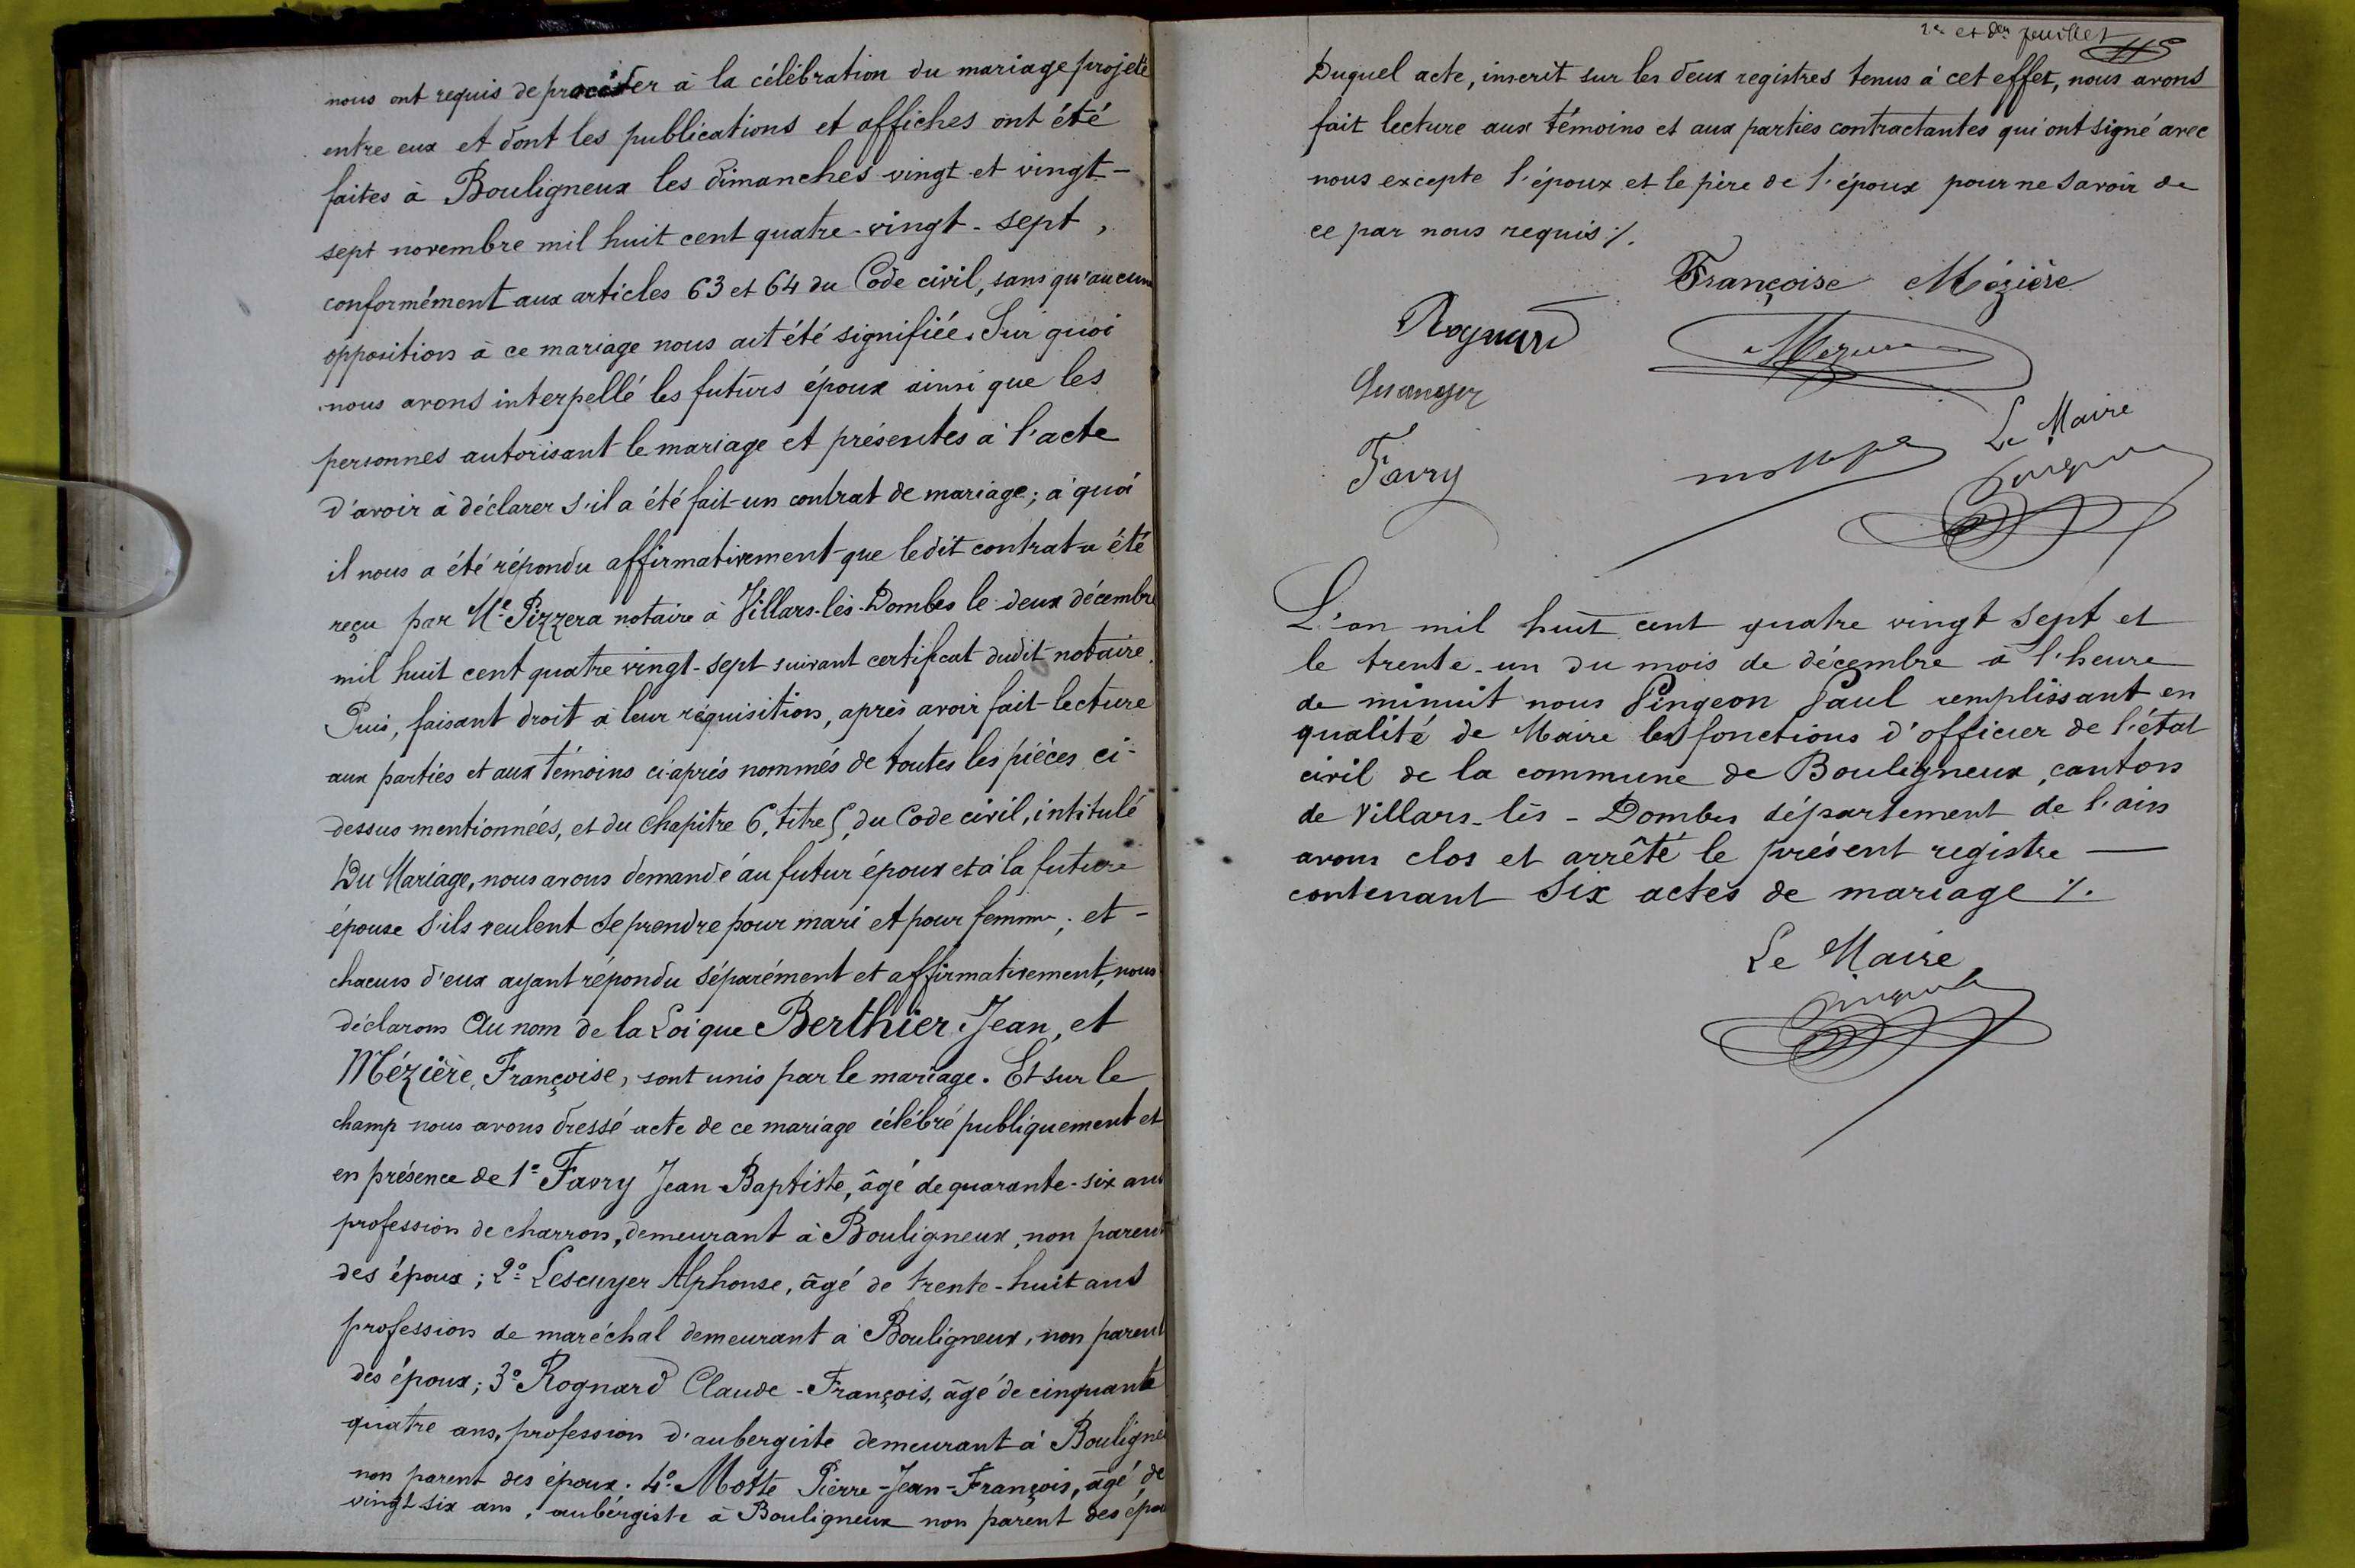 nous ont requis de procéder à la célébration du mariage projeté
entre eux et dont les publications et affiches ont été
faites à Bouligneux les dimanches vingt et vingt-
sept novembre mil huit cent quatre-vingt-sept,
conformément aux articles 63 et 64 du Code civil, sans qu'aucune
opposition à ce mariage nous ait été signifiée. Sur quoi
nous avons interpellé les futurs époux ainsi que les
personnes autorisant le mariage et présentes à l'acte
d'avoir à déclarer s'il a été fait un contrat de mariage; à quoi
il nous a été répondu affirmativement que ledit contrat a été
reçu par Me Pizzera notaire à Villars-les-Dombes le deux décembre
mil huit cent quatre vingt-sept suivant certificat dudit notaire.
Puis, faisant droit à leur réquisition, après avoir fait lecture
aux parties et aux témoins ci-après nommés de toutes les pièces ci-
dessus mentionnées, et du chapitre 6, titre 5, du Code civil, intitulé
Du Mariage, nous avons demandé au futur époux et à la future
épouse s'ils veulent se prendre pour mari et pour femme; et -
chacun d'eux ayant répondu séparément et affirmativement, nous
déclarons Au nom de la Loi que Berthier Jean, et
Mézière, Françoise, sont unis par le mariage. Et sur le
champ nous avons dressé acte de ce mariage célébré publiquement et
en présence de 1° Favry Jean-Baptiste, âgé de quarante-six ans
profession de charron, demeurant à Bouligneux, non parent
des époux; 2° Lescuyer Alphonse, âgé de trente-huit ans
profession de maréchal demeurant à Bouligneux, non parent
des époux; 3° Rognard Claude-François, âgé de cinquante
quatre ans, profession d'aubergiste demeurant à Bouligne
non parent des époux. 4° Motte Pierre-Jean-François, âgé de
vingt six ans, aubergiste à Bouligneux non parent des épou
2e et der feuillet
Duquel acte, inscrit sur les deux registres tenus à cet effet, nous avons
fait lecture aux témoins et aux parties contractantes qui ont signé avec
nous excepte l'époux et le père de l'époux pour ne savoir de
ce par nous requis ./.
Françoise Mézière
Rognard
Mezière
Favry
Le Maire
L'an mil huit cent quatre vingt sept et
le trente-un du mois de décembre à l'heure
de minuit nous Pingeon Paul remplissant en
qualité de Maire les fonctions d'officier de l'état
civil de la commune de Bouligneux, canton
de Villars-les-Dombes département de l'ain
avons clos et arrêté le présent registre —
contenant six actes de mariage ./.
Le Maire